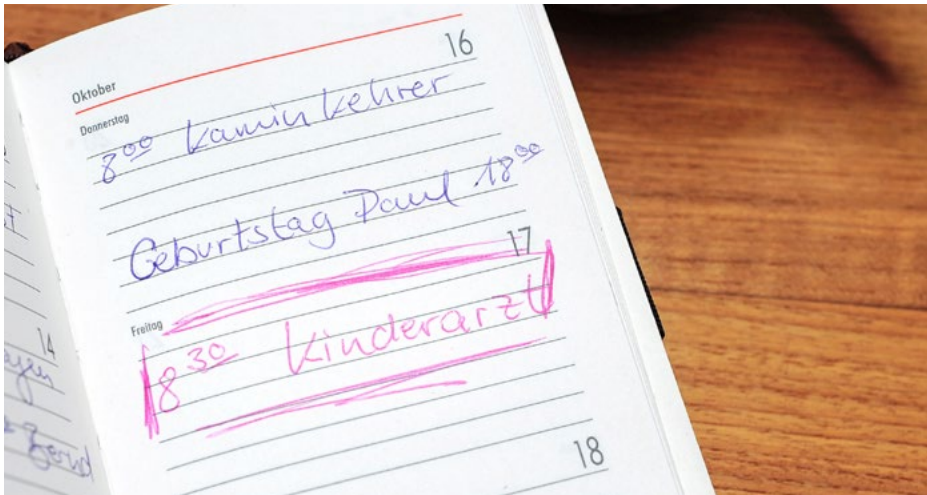 14
Oktober
16
Donnerstag
8 00 Kaminkehrer
Geburtstag Paul 18 00
17
Freitag
8 30 Kinderarzt
18